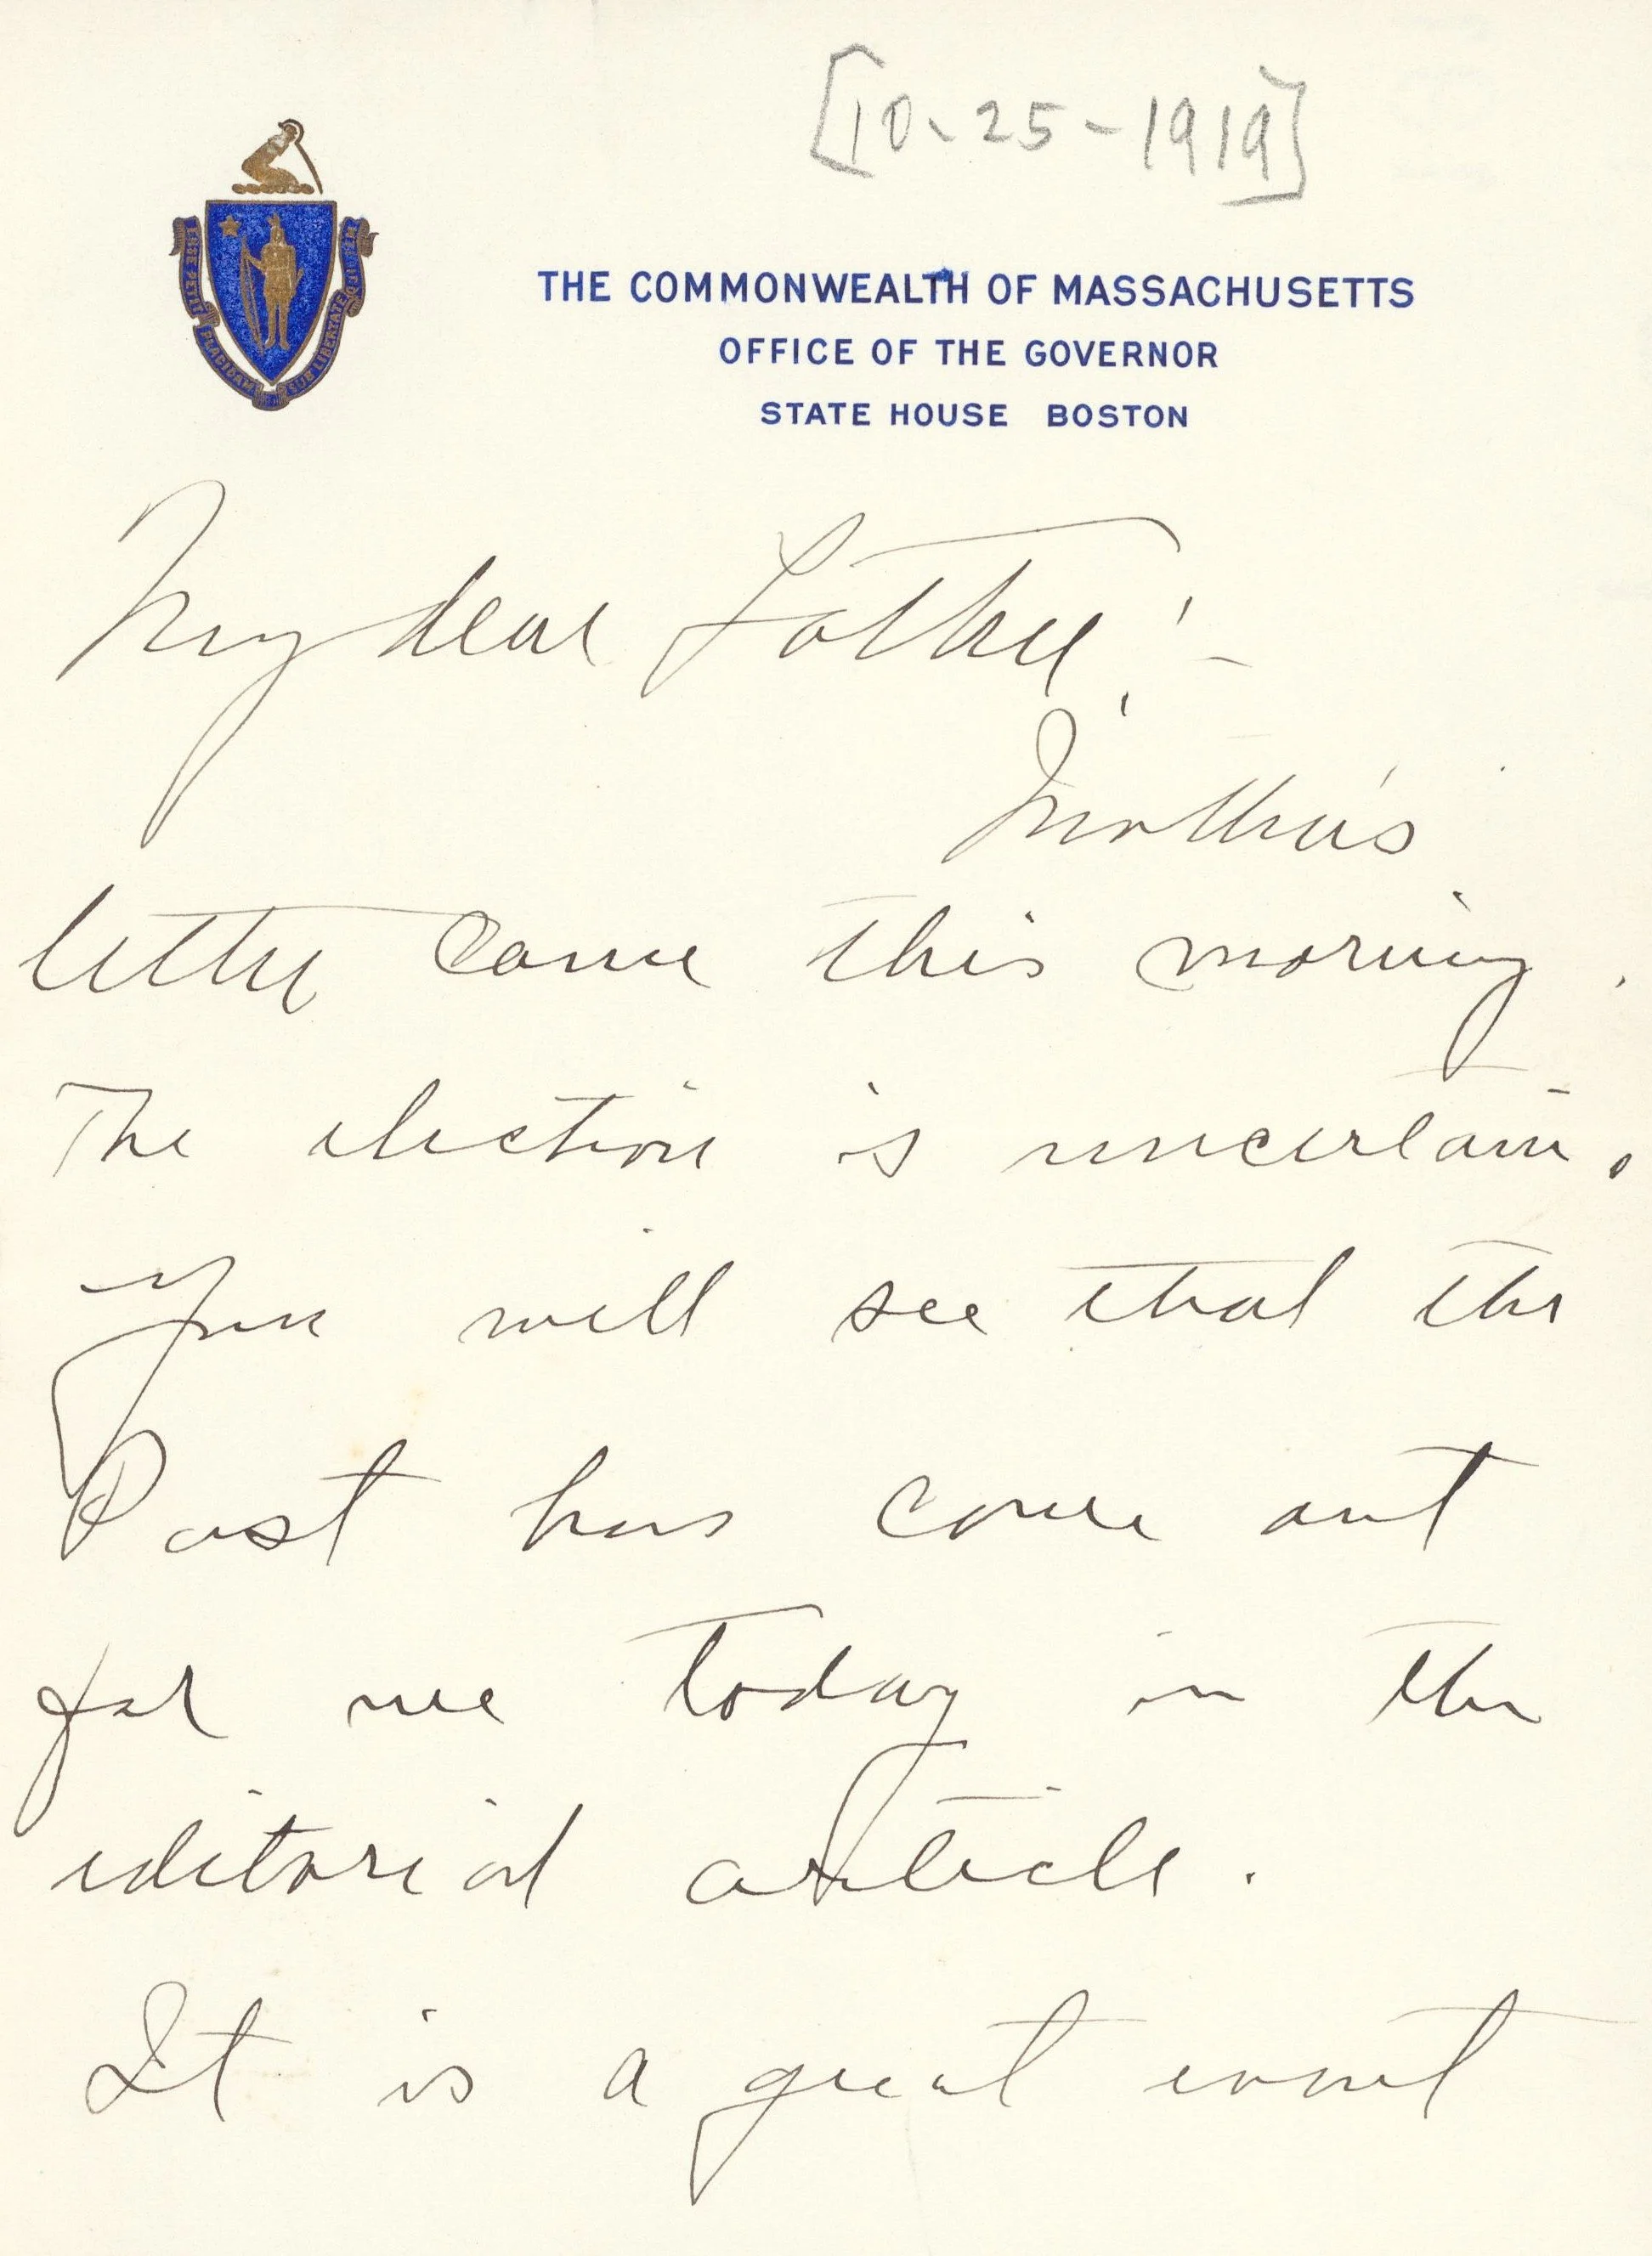 [10-25-1919]
ENSE PETIT PLACIDAM SUB LIBERTATE QUIETEM
THE COMMONWEALTH OF MASSACHUSETTS
OFFICE OF THE GOVERNOR
STATE HOUSE BOSTON
My dear Father:-
Mother's
letter came this morning.
The election is uncertain.
You will see that the
Post has come out
for me today in the
editorial article.
It is a great event